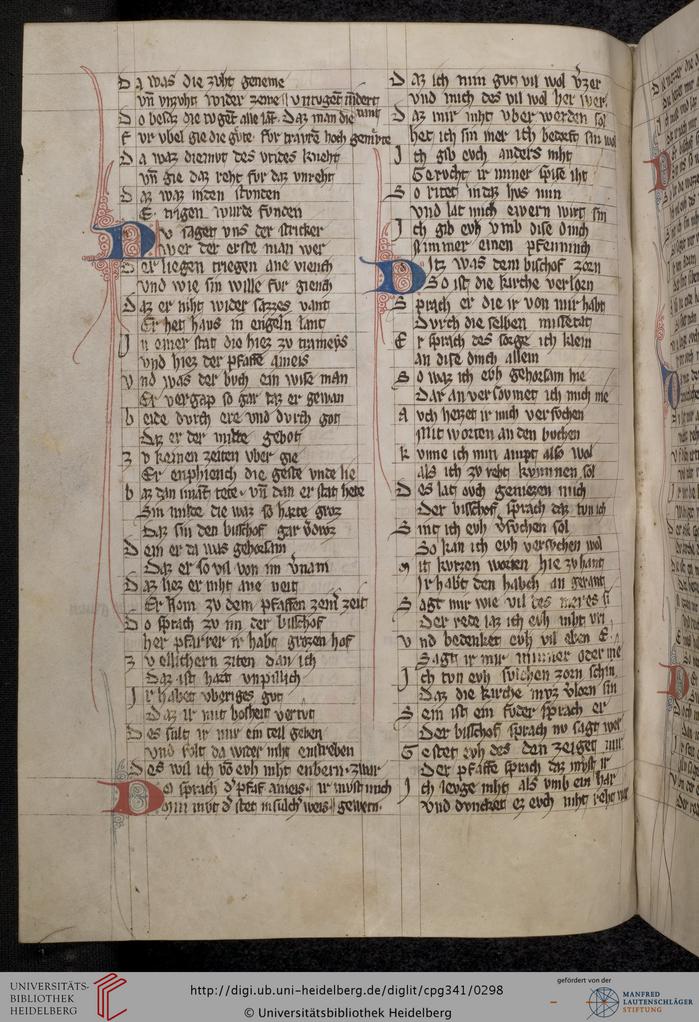 Da was die zvht geneme
vñ vnzvht wider zeme
Do besaz die tvgēt alle lāt. Daz man die
Fvr vbel gie die gvte. For travrē hoch gemvte
Da waz diemvt des vrides kneht
vñ gie daz reht fvr daz vnreht
Daz waz in den stvnden
E. nigen wurde fvnden
Nv saget vns der stricker
wer der erste man wer
Der liegen triegen ane viench
vnd wie sin wille fvr giench
Daz er niht wider sazzes vant
Er het havs in engeln lant
In einer stat die hiez zv trameys
vnd hiez der pfaffe ameis
vnd was der bvch ein wise man
Er vergap so gar daz er gewan
beide dvrch ere vnd dvrch got
Daz er der milte gebot
zv keinen zeiten vber gie
Er enphiench die geste vnde lie
baz dan iman tete. vñ dan er stat hete
Sin milte die waz so harte groz
Daz sin den bisschof gar v̄droz
Dem er da was gehorsam
Daz er so vil von im v̄nam
Daz liez er niht ane neit
Er kom zv dem pfaffen zeiner zeit
Do sprach zv im der bisschof
her pfarrer ir habt grozen hof
zv ellichern ziten dan ich
Daz ist hart vnpillich
Ir habet vberiges gvt
Daz ir mit bosheit vertvt
Des svlt ir mir ein teil geben
vnd solt da wider niht enstreben
Des wil ich vō evh niht enbern. zwar
Do sprach d' pfaf ameis. ir mvst mich
Min mvt d' stet in svlch' weis gewern.
Daz ich min gvt vil wol v̄zer
vnd mich des vil wol her wer
Daz mir niht vber werden sol
het ich sin mer ich bedorft sin wol
Ich gib evch anders niht
Gervcht ir miner spise iht
So ritet in daz hvs min
vnd lat mich ewern wirt sin
Ich gib evh vmb dise dinch
Nimmer einen pfenninch
Ditz was dem bischof zorn
So ist die kirche verlorn
Sprach er die ir von mir habt
Dvrch die selben missetat
Er sprach des sorge ich klein
an dise dinch allein
So waz ich evh gehorsam hie
Dar an versovmet ich mich nie
Avch heizet ir mich versvchen
Mit worten an den bvchen
kvnne ich min ampt also wol
als ich zv reht kvnnen sol
Des lat ovch geniezen mich
Der bisschof sprach daz tvn ich
Sint ich evh v̄svchen sol
So kan ich evh versvchen wol
mit kvrzen worten hie zv hant
Ir habt den habch an gerant
Sagt mir wie vil des meres si
Der rede laz ich evh niht vri
vnd bedenket evh vil eben E.
Sagt ir mir minner oder me
Ich tvn evh svlchen zorn schin
Daz die kirche mvz v̄lorn sin
Sein ist ein fvder sprach er
Der bisschof sprach nv sagt wer
Gestet evh des den zeiget mir
Der pfaffe sprach daz mvst ir
Ich levge niht als vmb ein har
vnd dvncket ez evch niht reht
UNIVERSITÄTS-
BIBLIOTHEK
HEIDELBERG
http://digi.ub.uni-heidelberg.de/diglit/cpg341/0298
© Universitätsbibliothek Heidelberg
gefördert von der
MANFRED
LAUTENSCHLÄGER
STIFTUNG